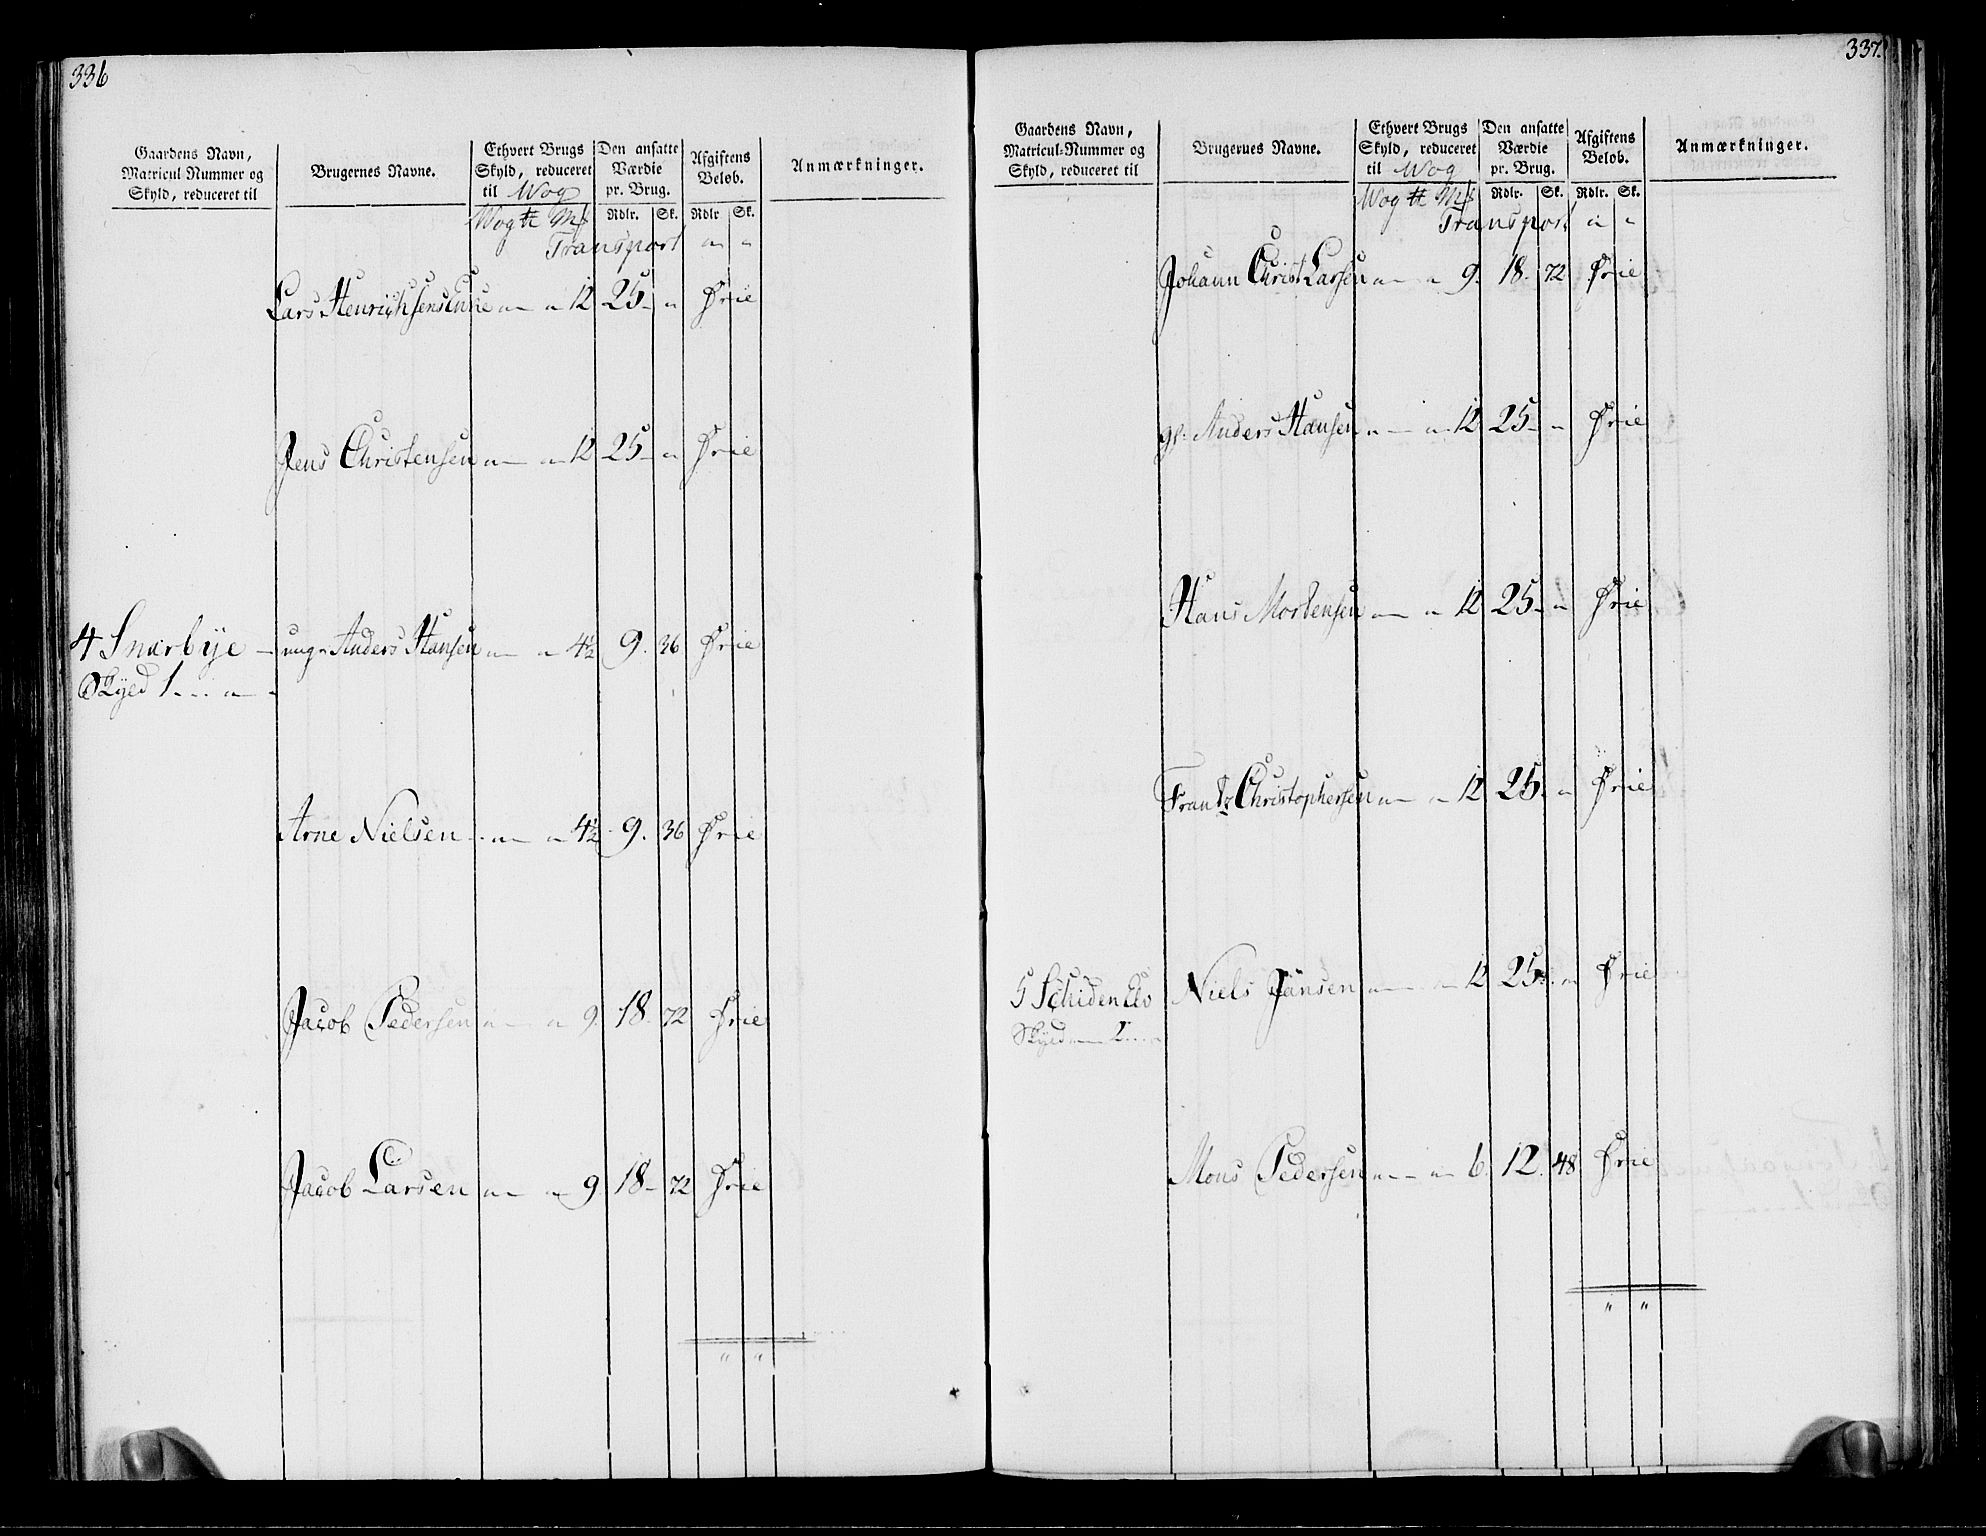 336
Gaardens Navn,
Matricul-Nummer og
Skyld, reduceret til
Brugernes Navne.
Ethvert Brugs
Skyld, reduceret
til Wog
Den ansatte
Værdie
pr. Brug.
Afgiftens
Beløb.
Anmærkninger.
Wog ℔ Mk
Rdlr. Sk. Rdlr Sk.
Transport " "
Lars Henrichsens Enke " — " 12 25 — " Frie
Jens Christensen " — " 12 25 — " Frie
4 Snarbye — unge Anders Hansen " — " 4½ 9. 36 Frie
Skyld 1 . . . " —
Arne Nielsen - " — " 4½ 9. 36 Frie
Jacob Pedersen " — " 9. 18. 72 Frie
Jacob Larsen " — " 9 18 — 72 Frie
" "
337.
Gaardens Navn,
Matricul-Nummer og
Skyld, reduceret til
Brugernes Navne.
Ethvert Brugs
Skyld, reduceret
til Wog
Den ansatte
Værdie
pr. Brug.
Afgiftens
Beløb.
Anmærkninger.
Wog ℔ Mk
Rdlr. Sk. Rdlr. Sk.
Transport " "
Johann Christ Larsen " — " 9. 18. 72 Frie
gl. Anders Hansen " — " 12 25 — " Frie
Hans Mortensen " — " 12 25 — " Frie
Frantz Christophersen " — " 12 25. " Frie
5 Schidenelv Niels Jansen " — " 12 25. " Frie
Skyld
Mons Pedersen " — " 6. 12. 48 Frie
" "